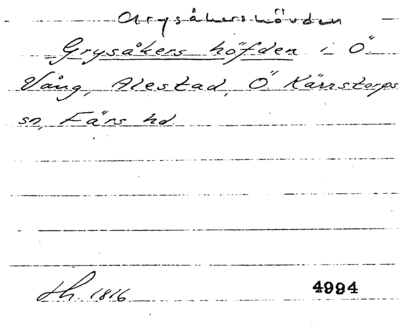 Grysåkershövden
Grysåkers höfden i Ö
Vång, Alestad, Ö Kärrstorps
sn, Färs hd
Lh. 1816 4994